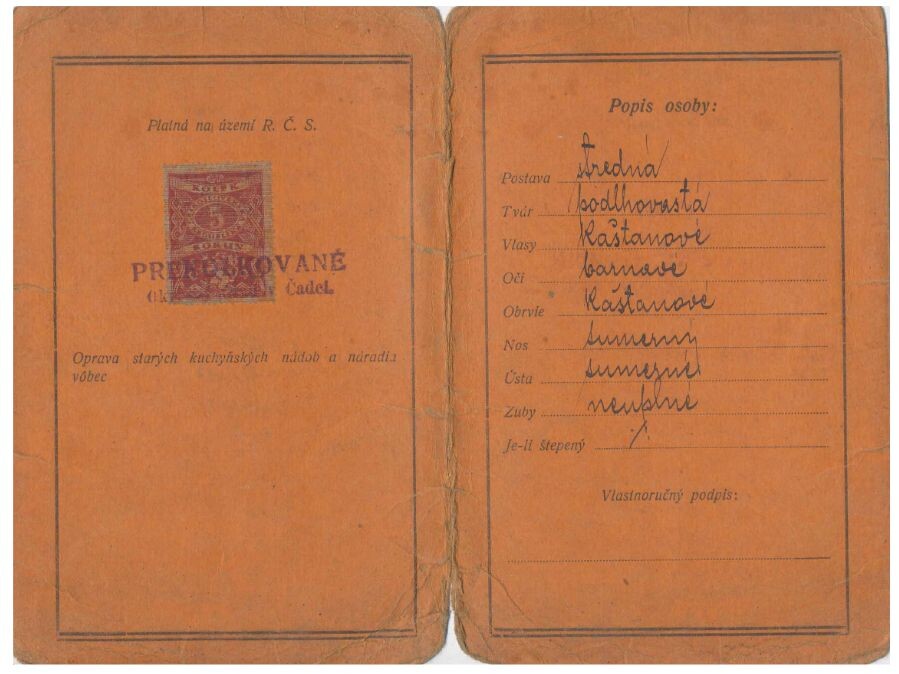 Platná na území R. Č. S.
KOLEK
5
KORUN
PREKOLKOVANÉ
Ok Čadci.
Oprava starých kuchyňských nádob a náradia
vôbec
Popis osoby:
Postava stredná
Tvár podlhovastá
Vlasy Kaštanové
Oči barnavé
Obrvie Kaštanové
Nos sumerný
Ústa sumerné
Zuby neuplné
Je-li štepený ./.
Vlastnoručný podpis: